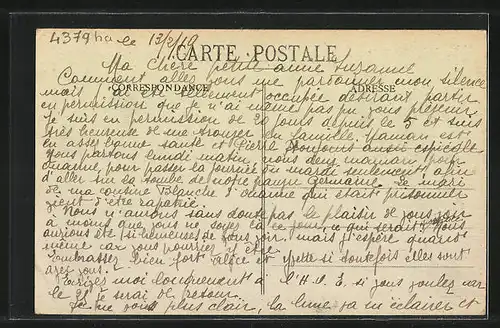 4379ha le 13/2/19
CARTE POSTALE
Ma chère petite amie Suzanne
Comment allez vous me pardonner mon silence
CORRESPONDANCE
ADRESSE
mais j'ai été tellement occupée désirant partir
en permission que je n'ai même pas pu vous
Je suis en permission de 20 jours depuis le 5 et suis
très heureuse de me trouver en famille. Maman est
en assez bonne santé et Pierre toujours aussi espiègle
Nous partons lundi matin, nous deux maman, pour
Roanne, pour passer la journée du mardi seulement, afin
d'aller sur la tombe de notre pauvre Germaine. Le mari
de ma cousine Blanche, de Roanne qui était prisonnier
vient d'être rapatrié.
Nous n'aurons sans doute pas le plaisir de vous voir
à moins que vous ne soyez là ce jour, ce qui serait? Nous
aurions été si heureuses de vous voir mais j'espère quand
même car vous pourriez y être.
Embrassez bien fort Alice et Yvette si toutefois elles sont
avec vous.
Ecrivez moi longuement à l'H.V.E. si vous voulez car
le 24 je serai de retour.
Je me vous plus clair, la lune va m'éclairer et